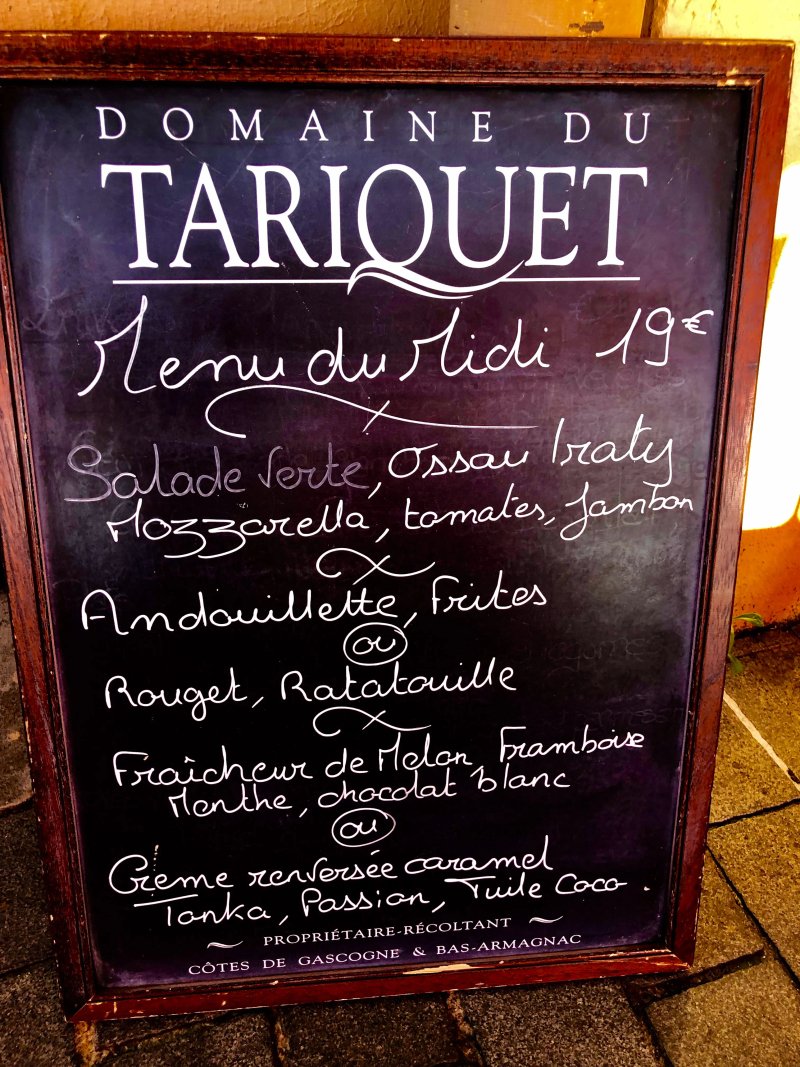 DOMAINE DU
TARIQUET
Menu du Midi 19€
Salade verte, Ossau Iraty
Mozzarella, tomates, Jambon
Andouillette, Frites
ou
Rouget, Ratatouille
Fraîcheur de Melon, Framboise
Menthe, chocolat blanc
ou
Crème renversée caramel
Tonka, Passion, Tuile Coco.
PROPRIÉTAIRE-RÉCOLTANT
CÔTES DE GASCOGNE & BAS-ARMAGNAC